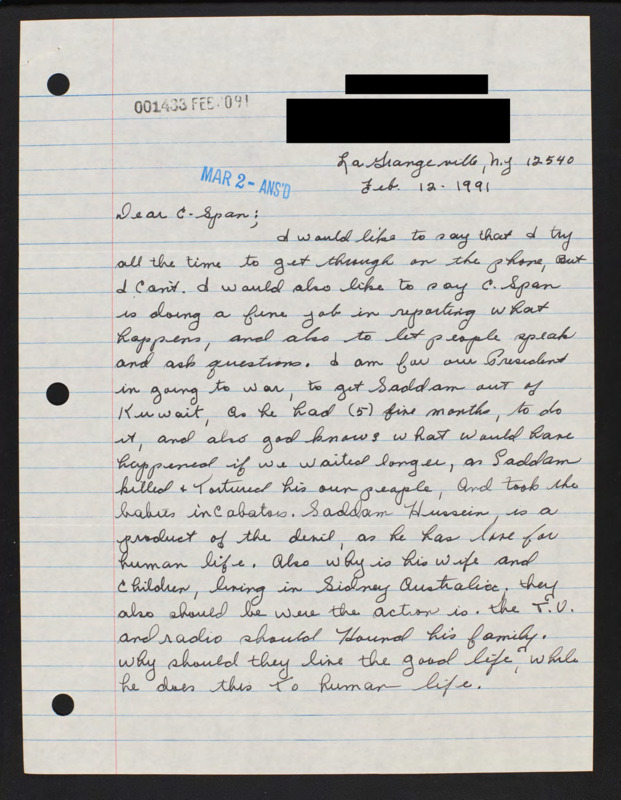 001433 FEB 2091
MAR 2 - ANS'D
La Grangeville, N.Y 12540
Feb. 12. 1991
Dear C-Span;
I would like to say that I try
all the time to get through on the phone, But
I Cant. I would also like to say C. Span
is doing a fine job in reporting what
happens, and also to let people speak
and ask questions. I am for our President
in going to war, to get Saddam out of
Kuwait, as he had (5) five months, to do
it, and also god knows what would have
happened if we waited longer, as Saddam
killed + Tortured his own people, and took the
babies incabators. Saddam Hussein, is a
product of the devil, as he has love for
human life. Also why is his wife and
Children, living in Sidney Australia. they
also should be were the action is. the T.V.
and radio should Hound his family.
why should they live the good life", while
he does this to human life.